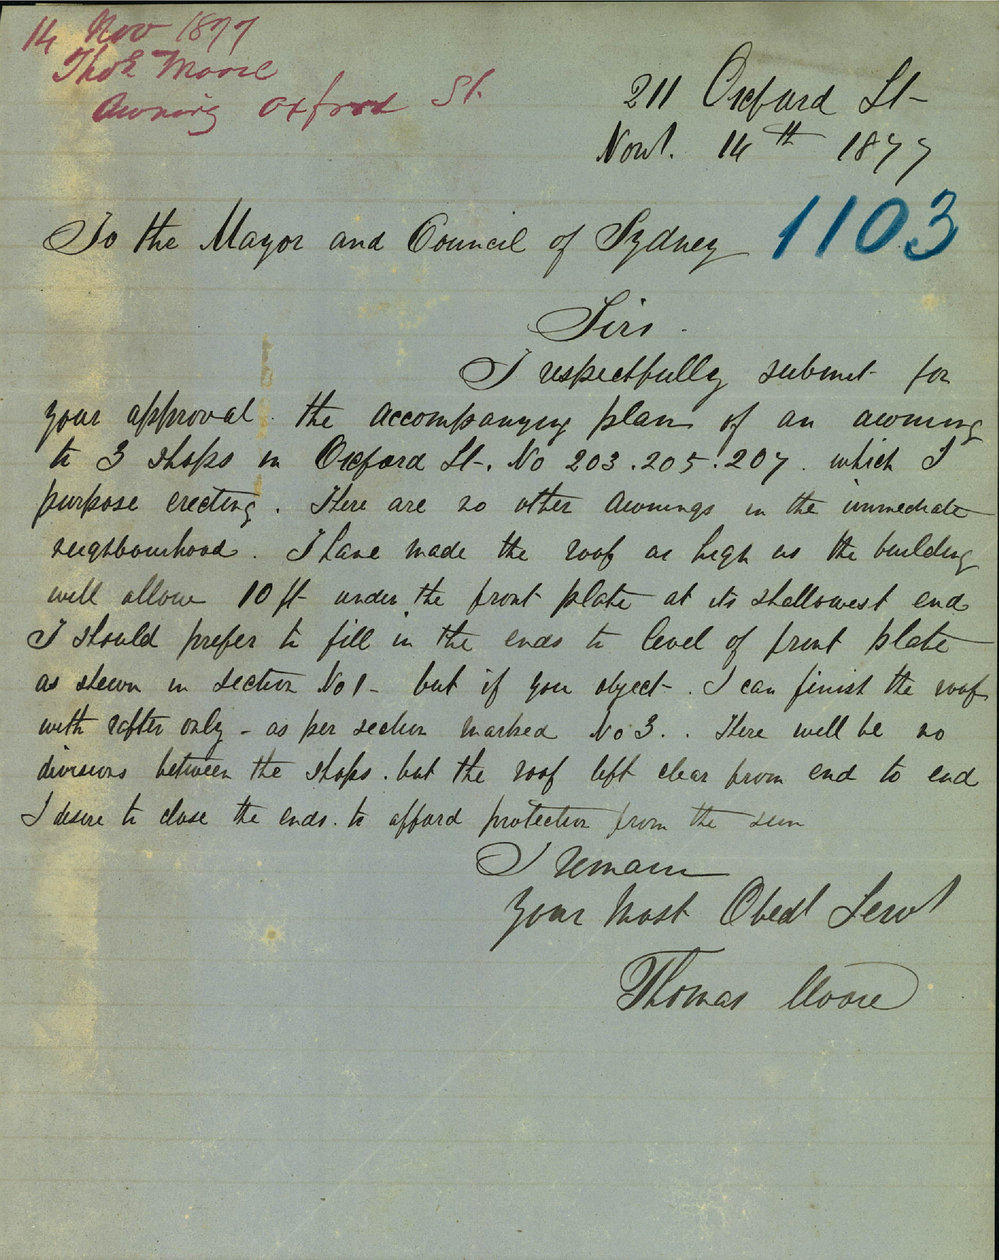 14 Nov 1877
Thos Moore
Awning Oxford St.
211 Oxford St
Novr. 14th 1877
To the Mayor and Council of Sydney
1103
Sirs.
I respectfully submit for
your approval. the accompanying plan of an awning
to 3 shops in Oxford St. No 203.205.207. which I
purpose erecting. There are no other awnings in the immediate
neighbourhood. I have made the roof as high as the building
will allow 10 ft under the front plate at its shallowest end
I should prefer to fill in the ends to level of front plate
as shewn in section No 1 - but if you object. I can finish the roof
with rafter only - as per section marked No 3. There will be no
divisions between the shops. but the roof left clear from end to end
I desire to close the ends. to afford protection from the sun
I remain
Your Most Obedt Servt
Thomas Moore